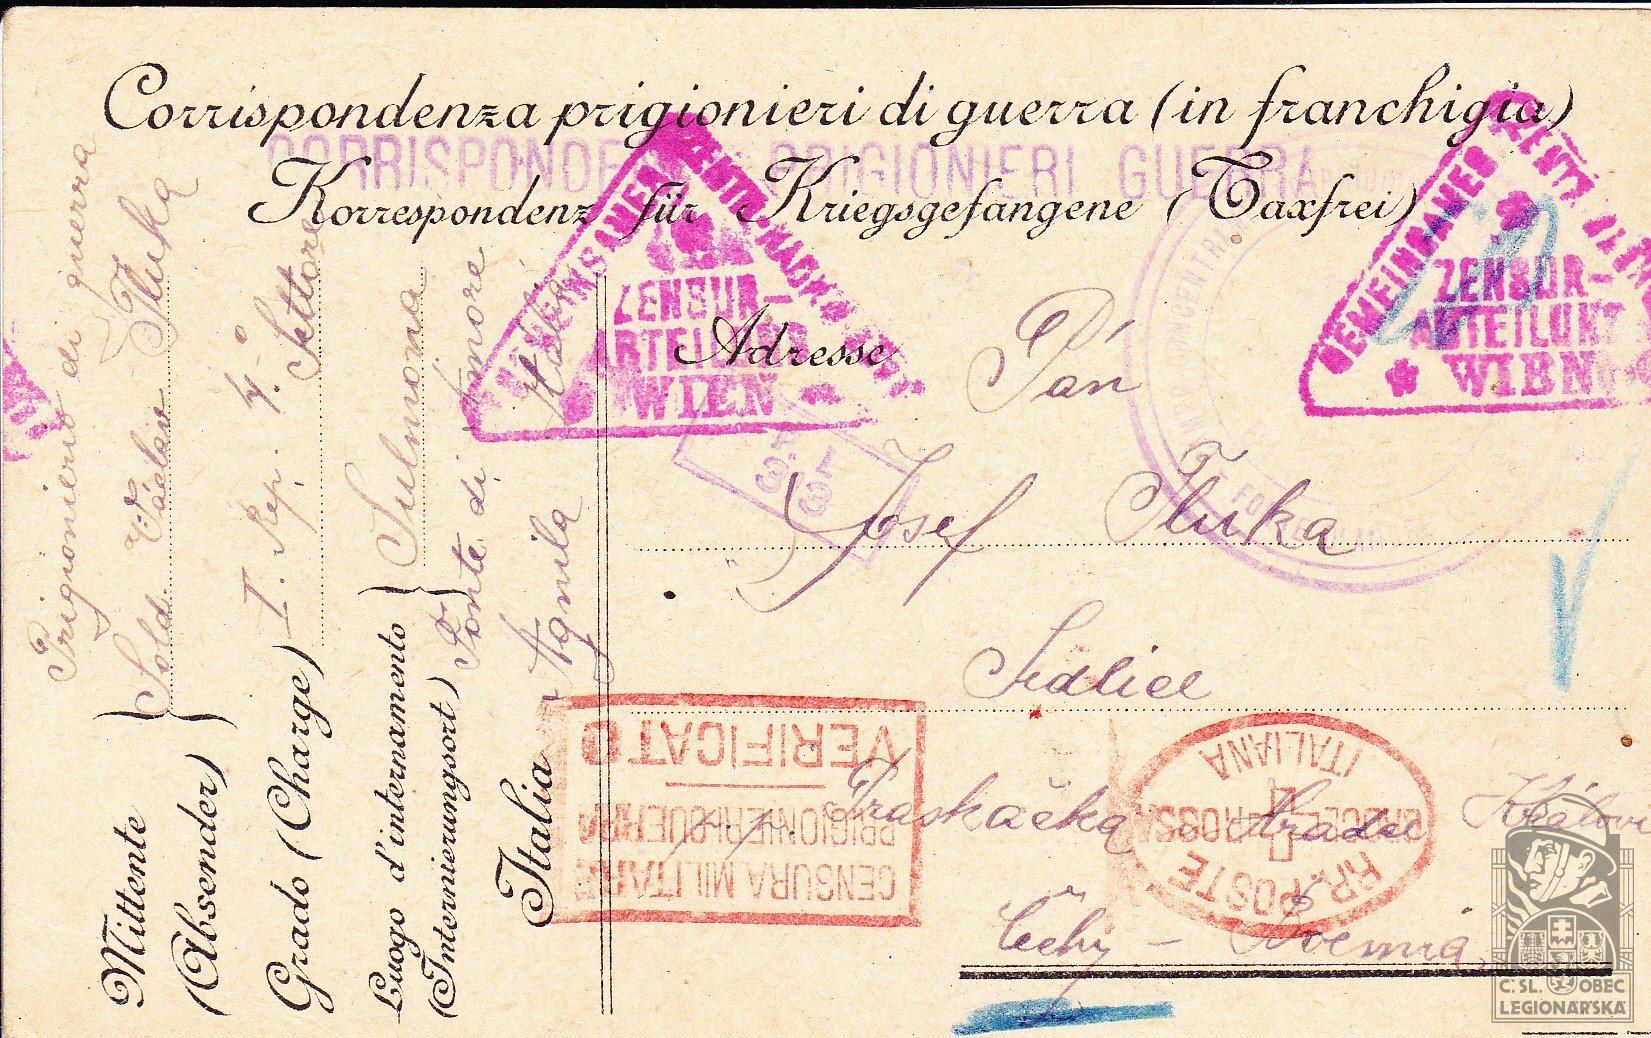 Corrispondenza prigionieri di guerra (in franchigia)
CORRISPONDEN PRIGIONIERI GUERRA
Korrespondenz für Kriegsgefangene (Taxfrei)
GEMEINSAMES ZENTR
ZENSUR-
ABTEILUNG
WIEN
GEMEINSAMES ZENT
ZENSUR-
ABTEILUNG
WIEN
Adresse
Pán
Josef Fluka
Praskačka Hradec Králové
Čechy –
Prigioniero di guerra
Mittente
(Absender)
Sold. Václav Fluka
Grado (Charge) I. Rep. 4. Settore
Luogo d'internamento
(Internierungsort)
Sulmona
Fonte di Amore
Aquila
Italia
Italia
CENSURA MILITARE
PRIGIONIERI GUERRA
VERIFICATO
RR. POSTE
CROCE ROSSA
ITALIANA
Č. SL. OBEC
LEGIONÁŘSKÁ